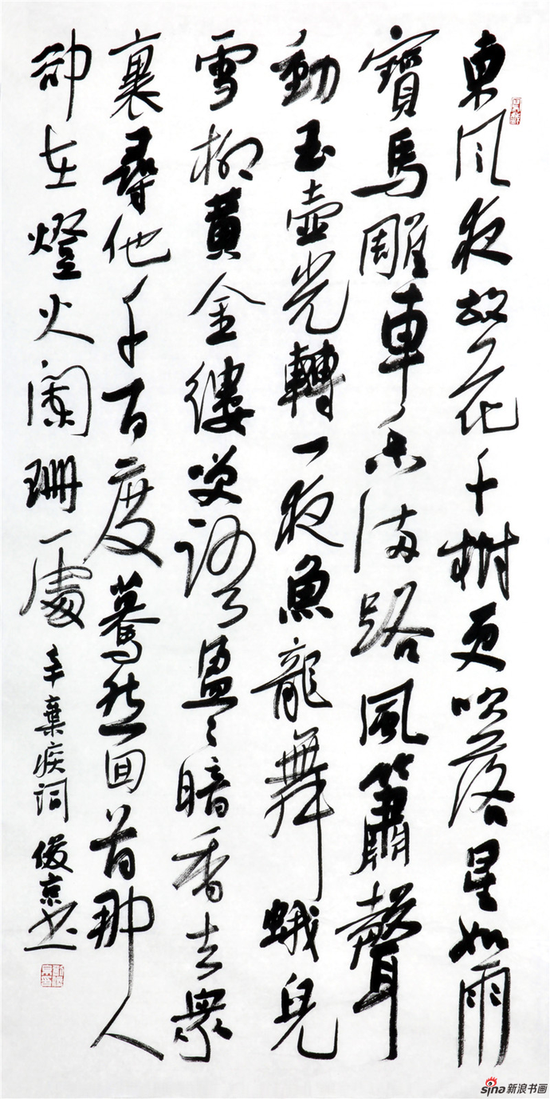 東风夜放花千樹更吹落星如雨
寶馬雕車香滿路風簫聲
動玉壺光轉一夜魚龍舞蛾兒
雪柳黄金縷笑語盈々暗香去眾
裏尋他千百度驀然回首那人
卻在燈火闌珊處
辛棄疾詞 俊京书
sina新浪书画